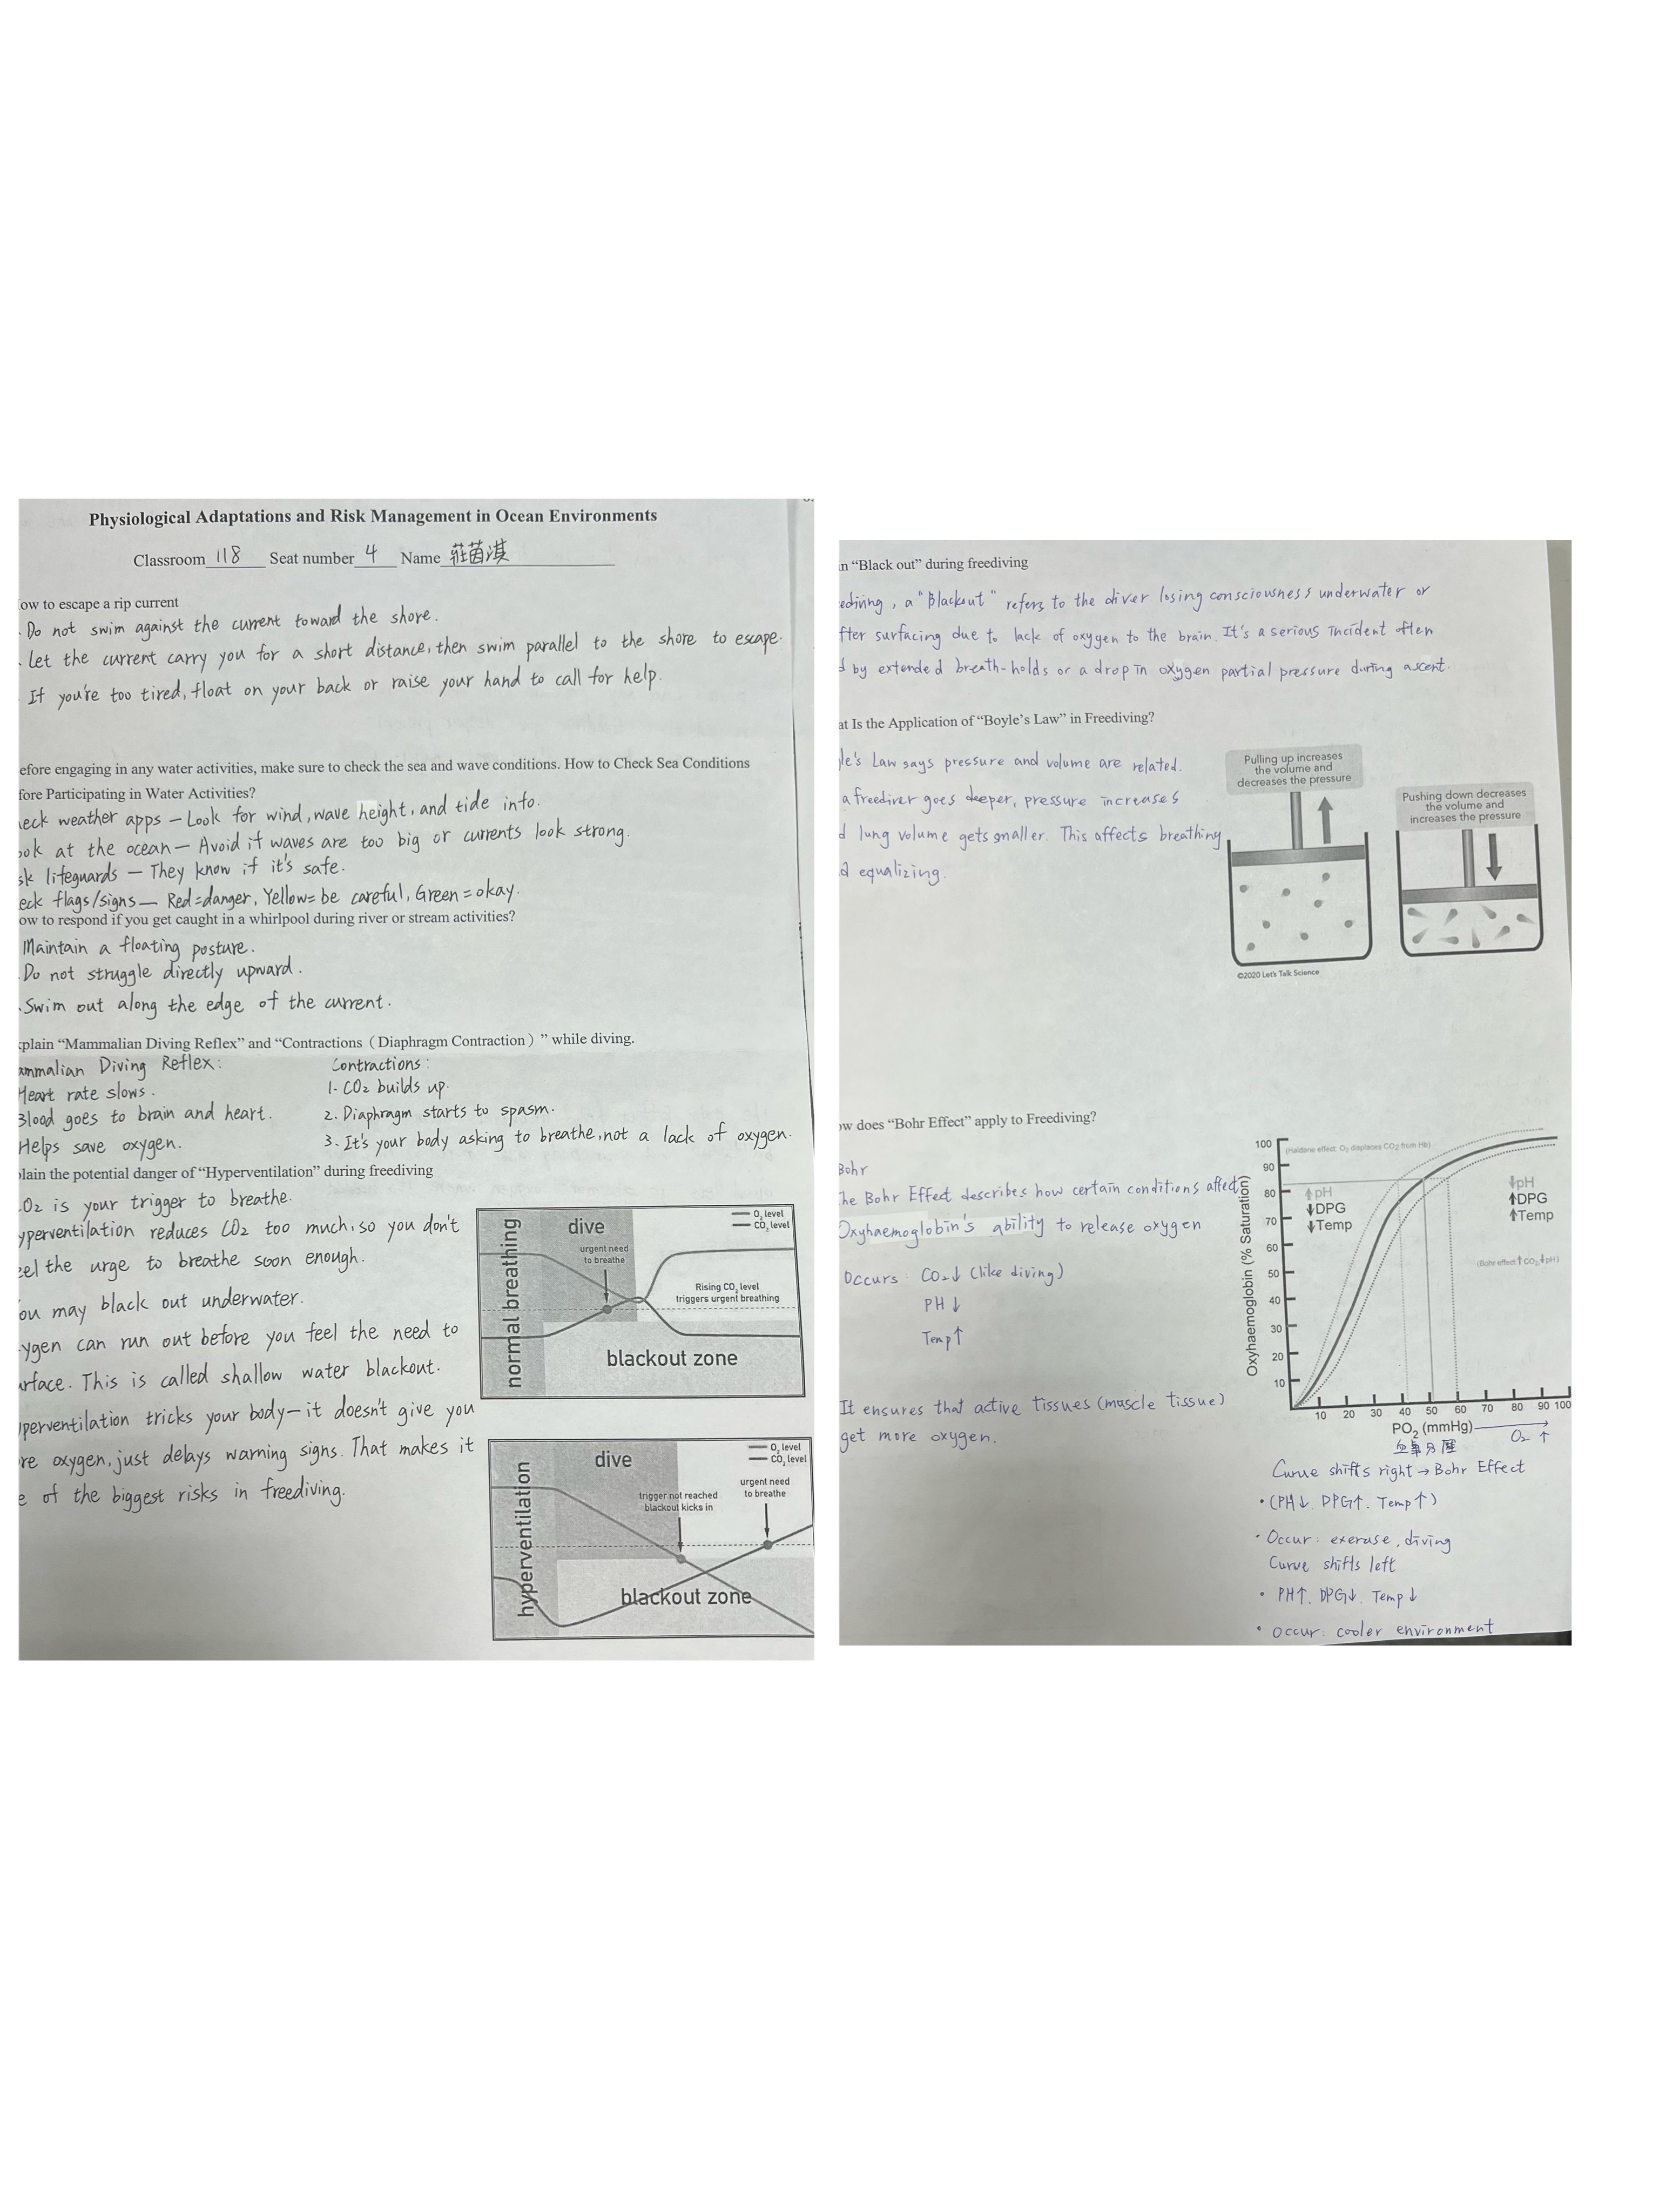 Physiological Adaptations and Risk Management in Ocean Environments
Classroom 118 Seat number 4 Name 莊茵淇
ow to escape a rip current
Do not swim against the current toward the shore.
Let the current carry you for a short distance, then swim parallel to the shore to escape.
If you're too tired, float on your back or raise your hand to call for help.
efore engaging in any water activities, make sure to check the sea and wave conditions. How to Check Sea Conditions
fore Participating in Water Activities?
eck weather apps – Look for wind, wave height, and tide info.
ok at the ocean – Avoid if waves are too big or currents look strong.
sk lifeguards – They know if it's safe.
eck flags/signs – Red=danger, Yellow=be careful, Green=okay.
ow to respond if you get caught in a whirlpool during river or stream activities?
Maintain a floating posture.
Do not struggle directly upward.
Swim out along the edge of the current.
plain “Mammalian Diving Reflex” and “Contractions（Diaphragm Contraction）” while diving.
ammalian Diving Reflex:
Heart rate slows.
Blood goes to brain and heart.
Helps save oxygen.
Contractions:
1. CO2 builds up.
2. Diaphragm starts to spasm.
3. It's your body asking to breathe, not a lack of oxygen.
plain the potential danger of “Hyperventilation” during freediving
O2 is your trigger to breathe.
yperventilation reduces CO2 too much, so you don't
eel the urge to breathe soon enough.
ou may black out underwater.
ygen can run out before you feel the need to
urface. This is called shallow water blackout.
yperventilation tricks your body – it doesn't give you
re oxygen, just delays warning signs. That makes it
e of the biggest risks in freediving.
normal breathing
dive
O2 level
CO2 level
urgent need
to breathe
Rising CO2 level
triggers urgent breathing
blackout zone
hyperventilation
dive
O2 level
CO2 level
trigger not reached
blackout kicks in
urgent need
to breathe
blackout zone
n “Black out” during freediving
ediving, a "Blackout" refers to the diver losing consciousness underwater or
fter surfacing due to lack of oxygen to the brain. It's a serious incident often
d by extended breath-holds or a drop in oxygen partial pressure during ascent.
at Is the Application of “Boyle’s Law” in Freediving?
le's Law says pressure and volume are related.
a freediver goes deeper, pressure increases
d lung volume gets smaller. This affects breathing
d equalizing.
Pulling up increases
the volume and
decreases the pressure
Pushing down decreases
the volume and
increases the pressure
©2020 Let's Talk Science
ow does “Bohr Effect” apply to Freediving?
Bohr
he Bohr Effect describes how certain conditions affect
Oxyhaemoglobin's ability to release oxygen
Occurs: CO2↓ (like diving)
PH ↓
Temp↑
It ensures that active tissues (muscle tissue)
get more oxygen.
Oxyhaemoglobin (% Saturation)
100
90
80
70
60
50
40
30
20
10
(Haldane effect: O2 displaces CO2 from Hb)
↑pH
↓DPG
↓Temp
↓pH
↑DPG
↑Temp
(Bohr effect ↑CO2,↓pH)
10 20 30 40 50 60 70 80 90 100
PO2 (mmHg)
O2 ↑
Curve shifts right → Bohr Effect
• (PH↓. DPG↑. Temp↑)
• Occur: exeruse, diving
Curve shifts left
• PH↑. DPG↓. Temp↓
• Occur: cooler environment